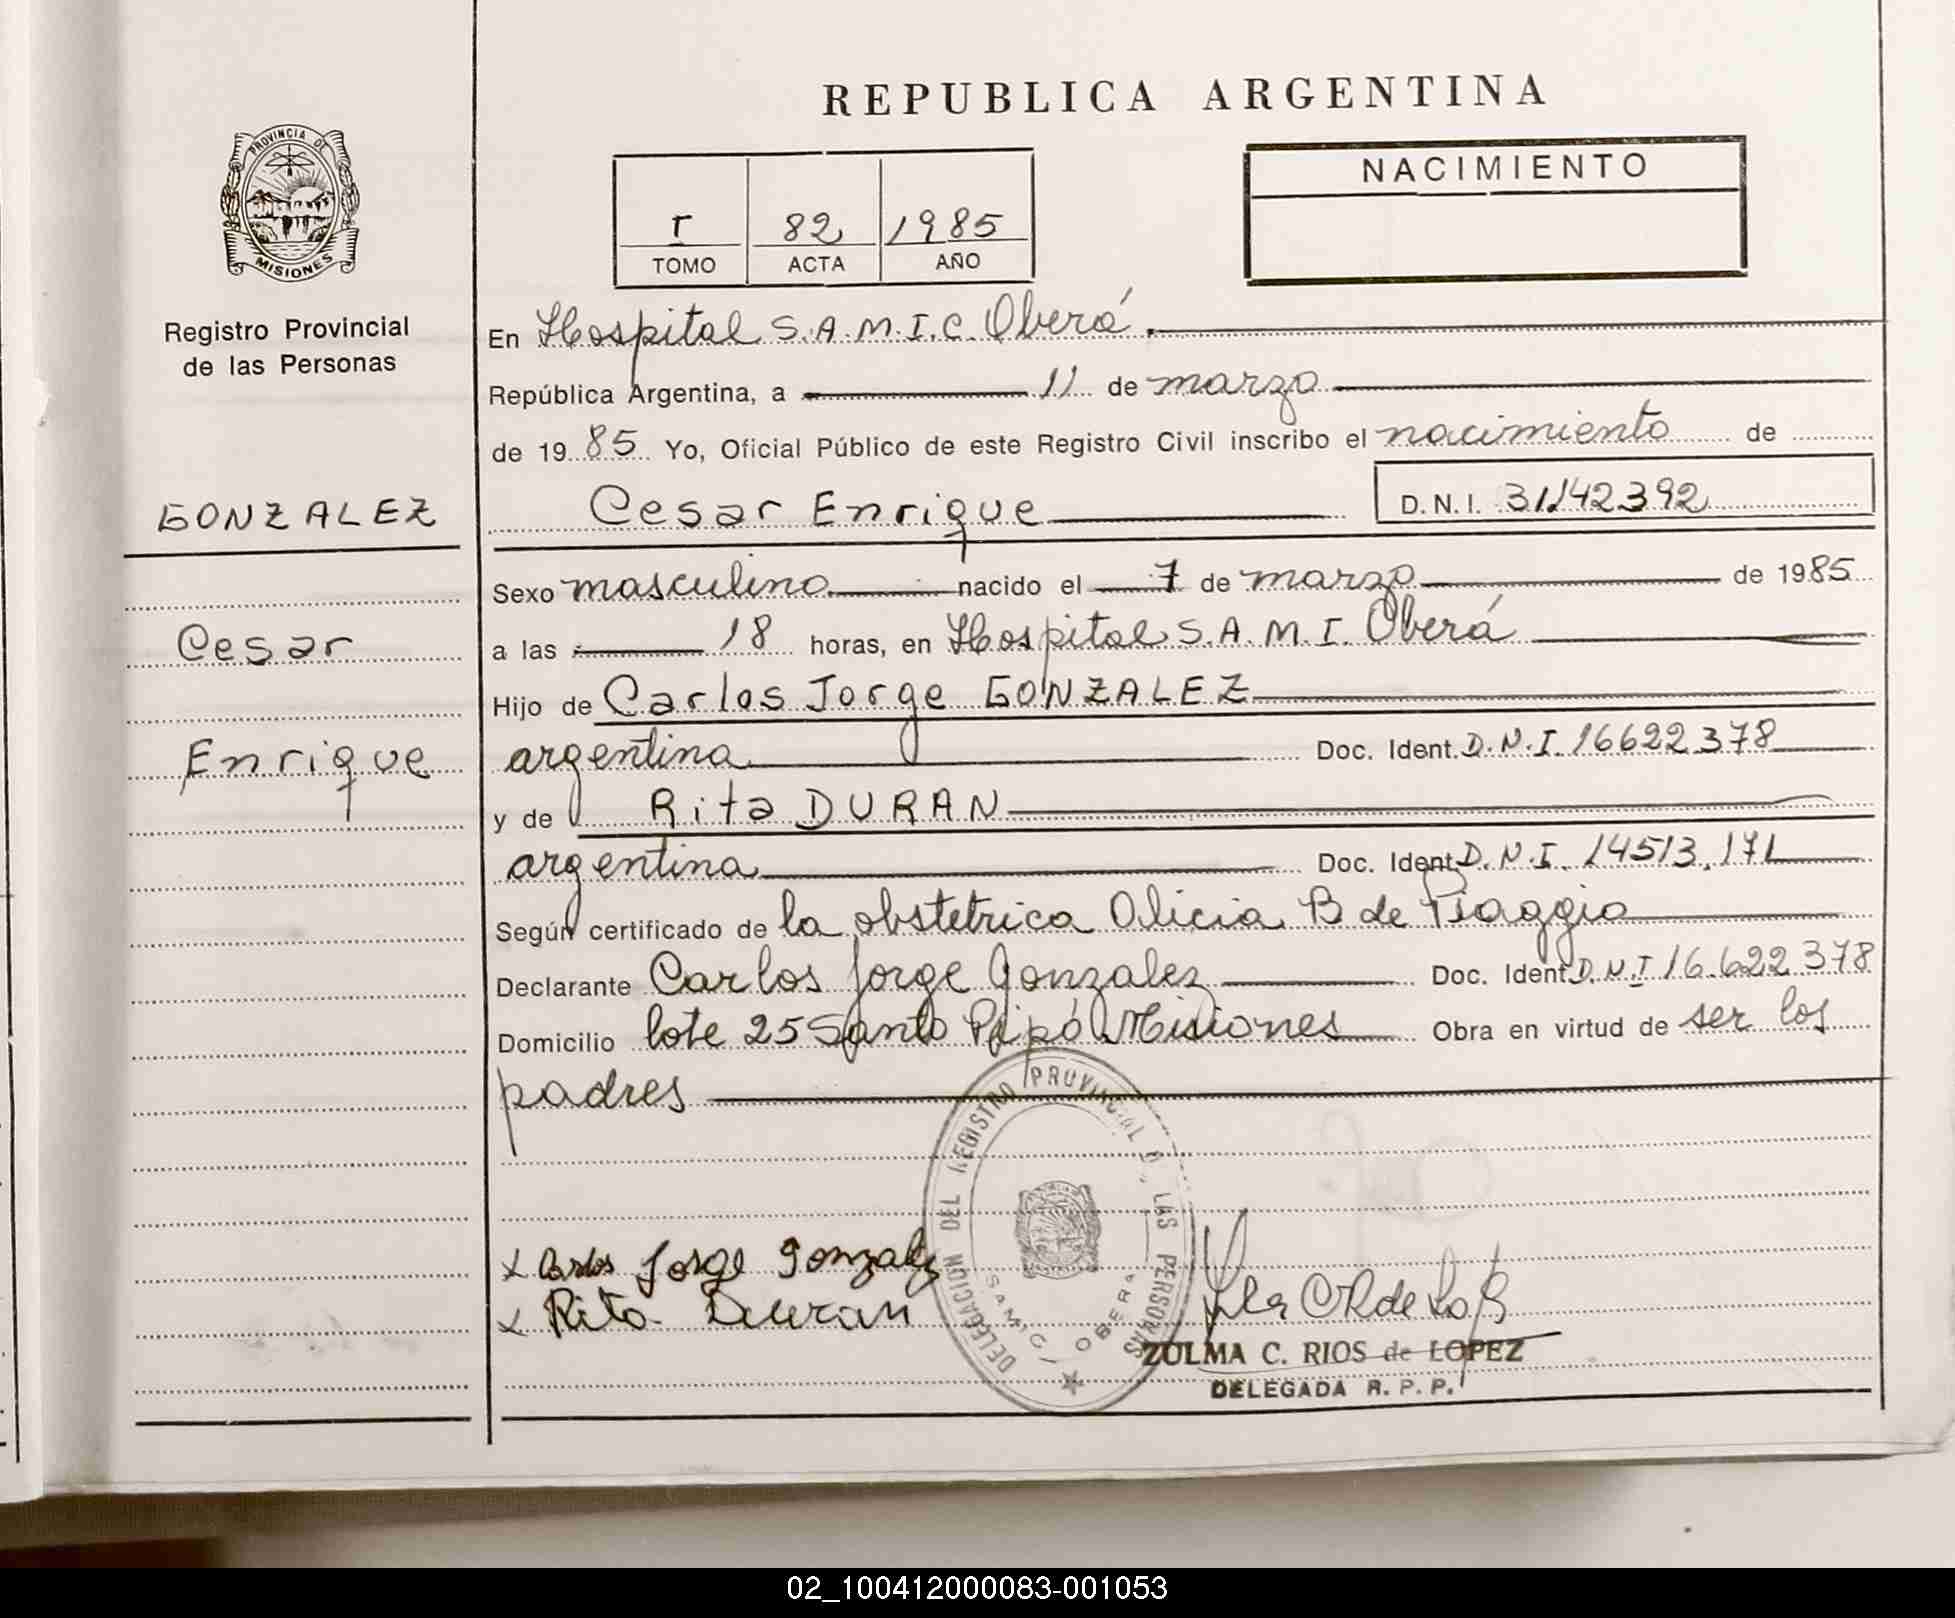 REPUBLICA ARGENTINA
PROVINCIA DE
MISIONES
Registro Provincial
de las Personas
I 82 1985
TOMO ACTA AÑO
NACIMIENTO
En Hospital S.A.M.I.C. Oberá
República Argentina, a 11 de marzo
de 1985 Yo, Oficial Público de este Registro Civil inscribo el nacimiento de
GONZALEZ
Cesar Enrique D.N.I. 31142392
Sexo masculino nacido el 7 de marzo de 1985
Cesar
a las 18 horas, en Hospital S.A.M.I. Oberá
Hijo de Carlos Jorge GONZALEZ
Enrique
argentina Doc. Ident. D.N.I. 16622378
y de Rita DURAN
argentina Doc. Ident. D.N.I. 14513.171
Según certificado de la obstetrica Alicia B de Piaggio
Declarante Carlos Jorge Gonzalez Doc. Ident. D.N.I 16.622378
Domicilio lote 25 Santo Pipó Misiones Obra en virtud de ser los
padres
DELEGACION DEL REGISTRO PROVINCIAL D. LAS PERSONAS
SAMIC OBERA
x Carlos Jorge Gonzalez
x Rita Duran
ZULMA C. RIOS de LOPEZ
DELEGADA R. P. P.
02_100412000083-001053